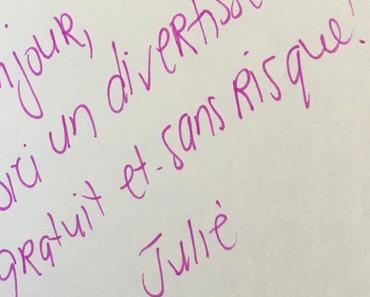 njour,
oici un divertiss
gratuit et sans risque!
Julie